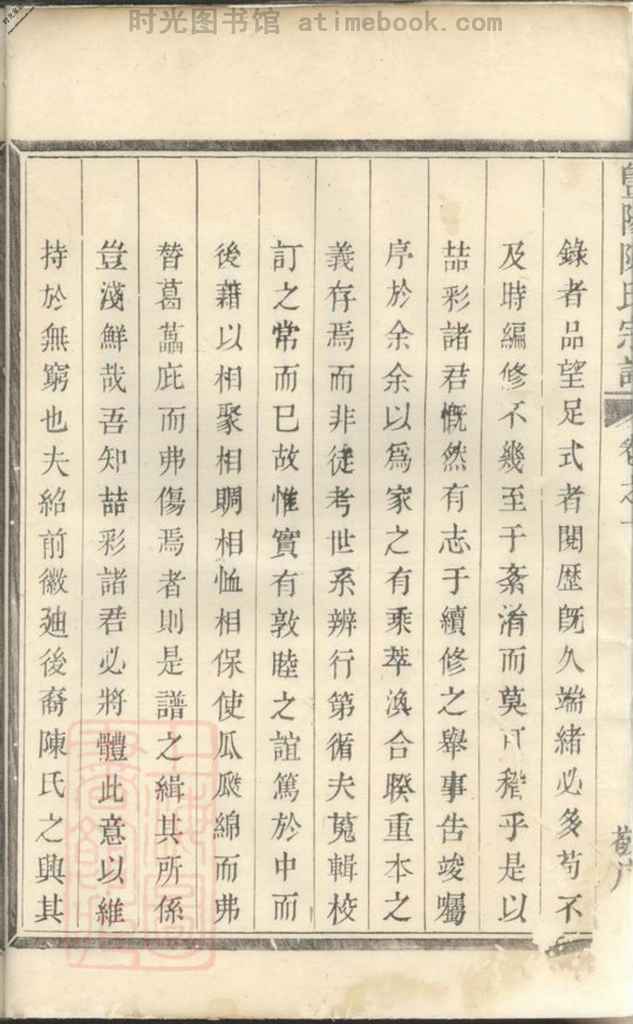 时光图书馆 atimebook.com
陳氏宗譜
卷之一
錄者品望足式者閱歷既久端緒必多苟不
及時編修不幾至于紊淆而莫可稽乎是以
喆彩諸君慨然有志于續修之舉事告竣囑
序於余余以為家之有乘萃渙合睽重本之
義存焉而非徒考世系辨行第循夫蒐輯校
訂之常而已故惟實有敦睦之誼篤於中而
後藉以相聚相賙相恤相保使瓜瓞綿而弗
替葛藟庇而弗傷焉者則是譜之緝其所係
豈淺鮮哉吾知喆彩諸君必將體此意以維
持於無窮也夫紹前徽迪後裔陳氏之興其